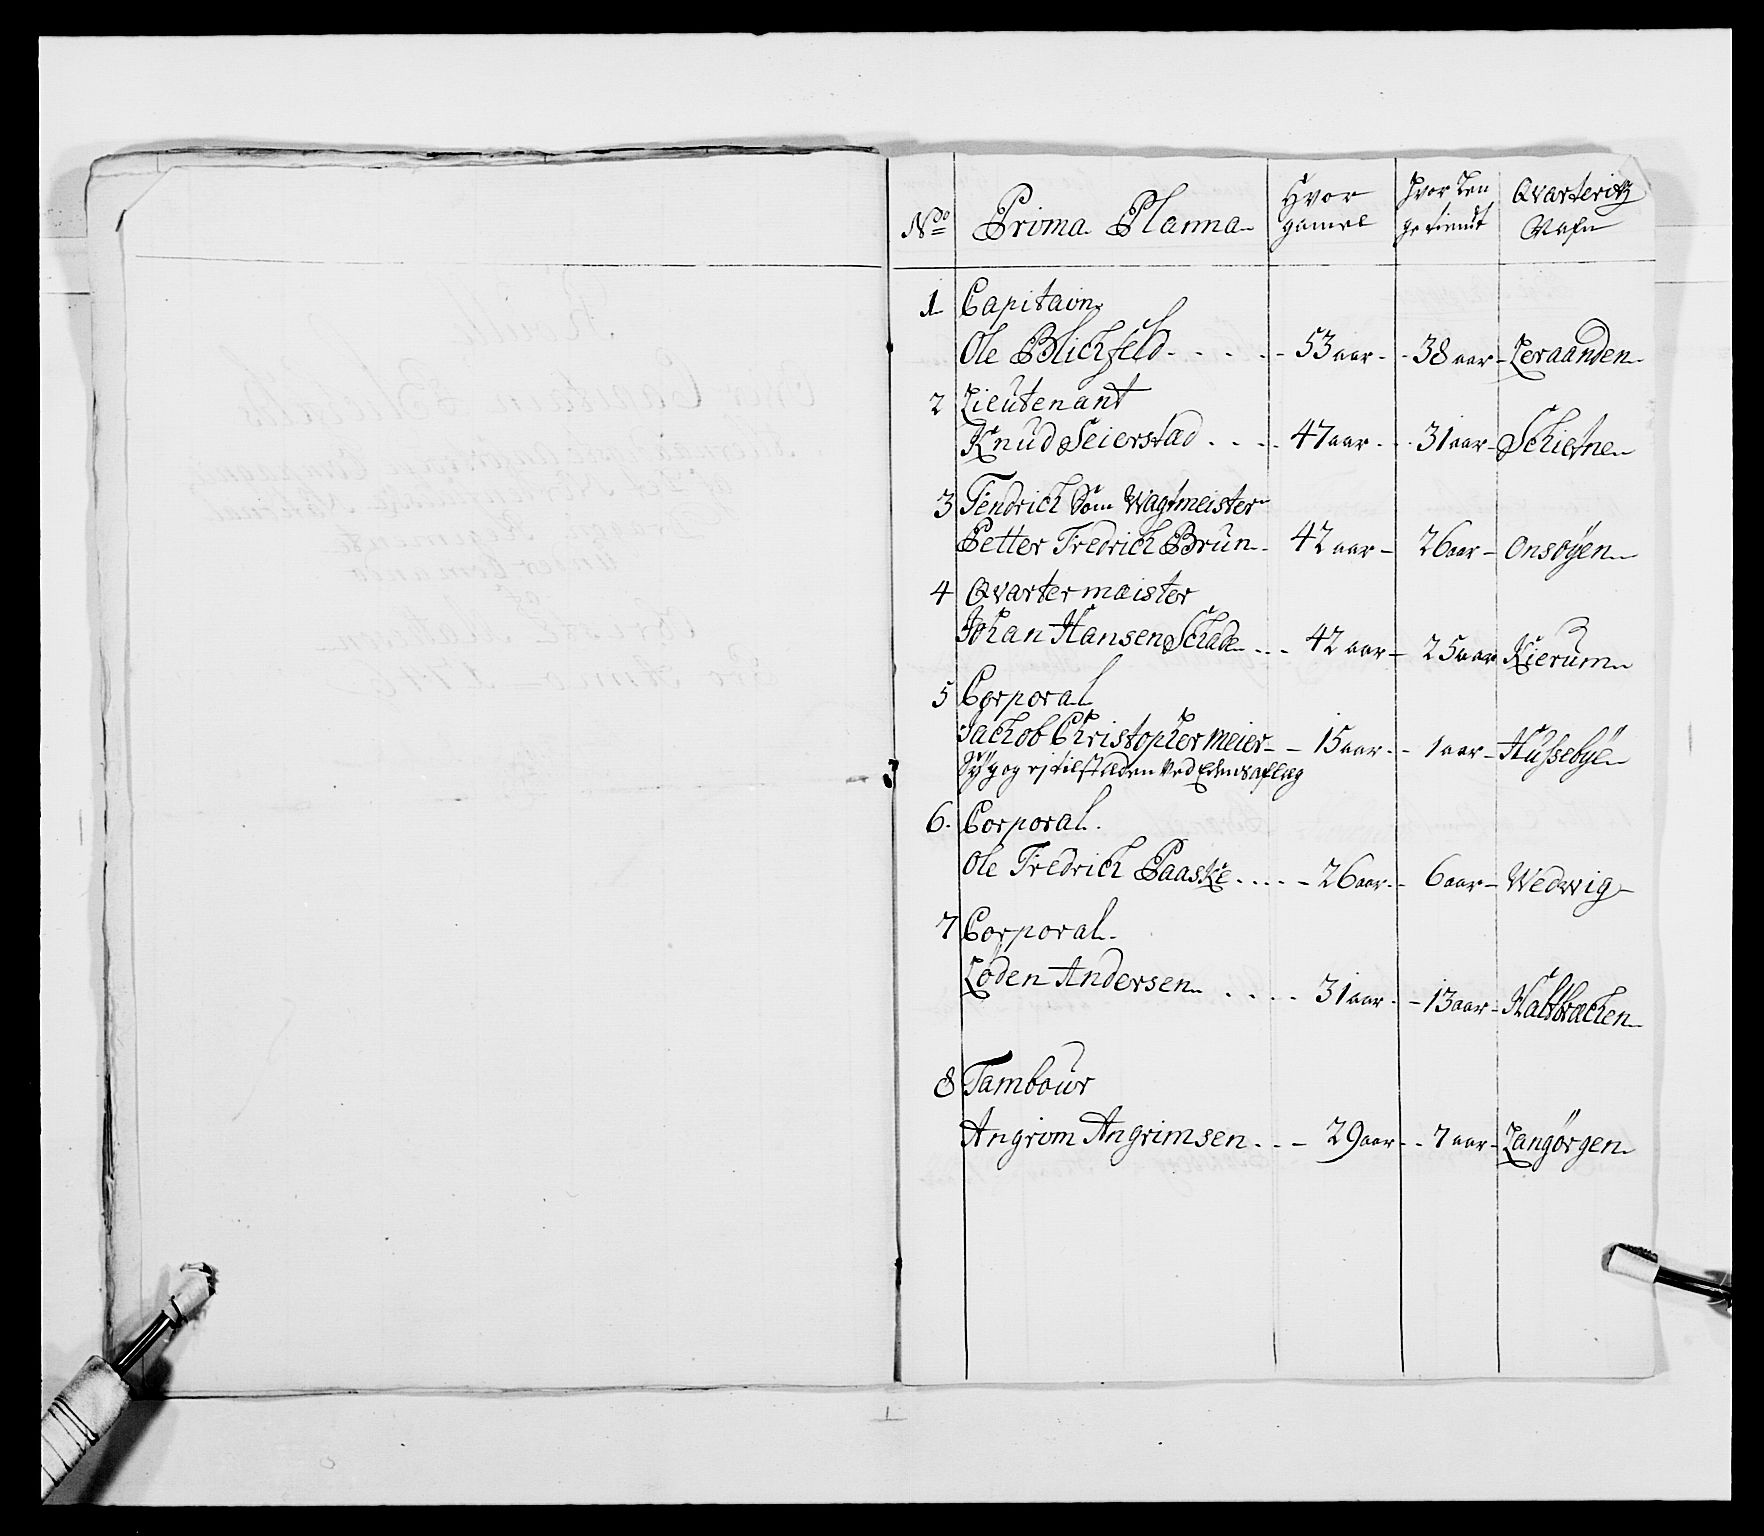 No Prima Planna Hvor gamel Hvor Len getienut Qvarterits Nafn
1 Capitain
Ole Blichfeld 53 aar 38 aar Leraanden
2 Lieutenant
Knud Seierstad 47 aar 31 aar Schietne
3 Fendrich Som Wagtmeister
Petter Fredrich Brun 42 aar 26 aar Onsöyen
4 Qvartermeister
Johan Hansen Schade 42 aar 25 aar Kierum
5 Corporal
Jachob Christopher meier 15 aar 1 aar Hussebye
Syg og ej tilstæden Ved Edens aflæg
6. Corporal.
Ole Fredrich Paaske 26 aar 6 aar Wedwig
7 Corporal
Loden Andersen 31 aar 13 aar
8 Tambour
Angrim Angrimsen 29 aar 7 aar Langörgen